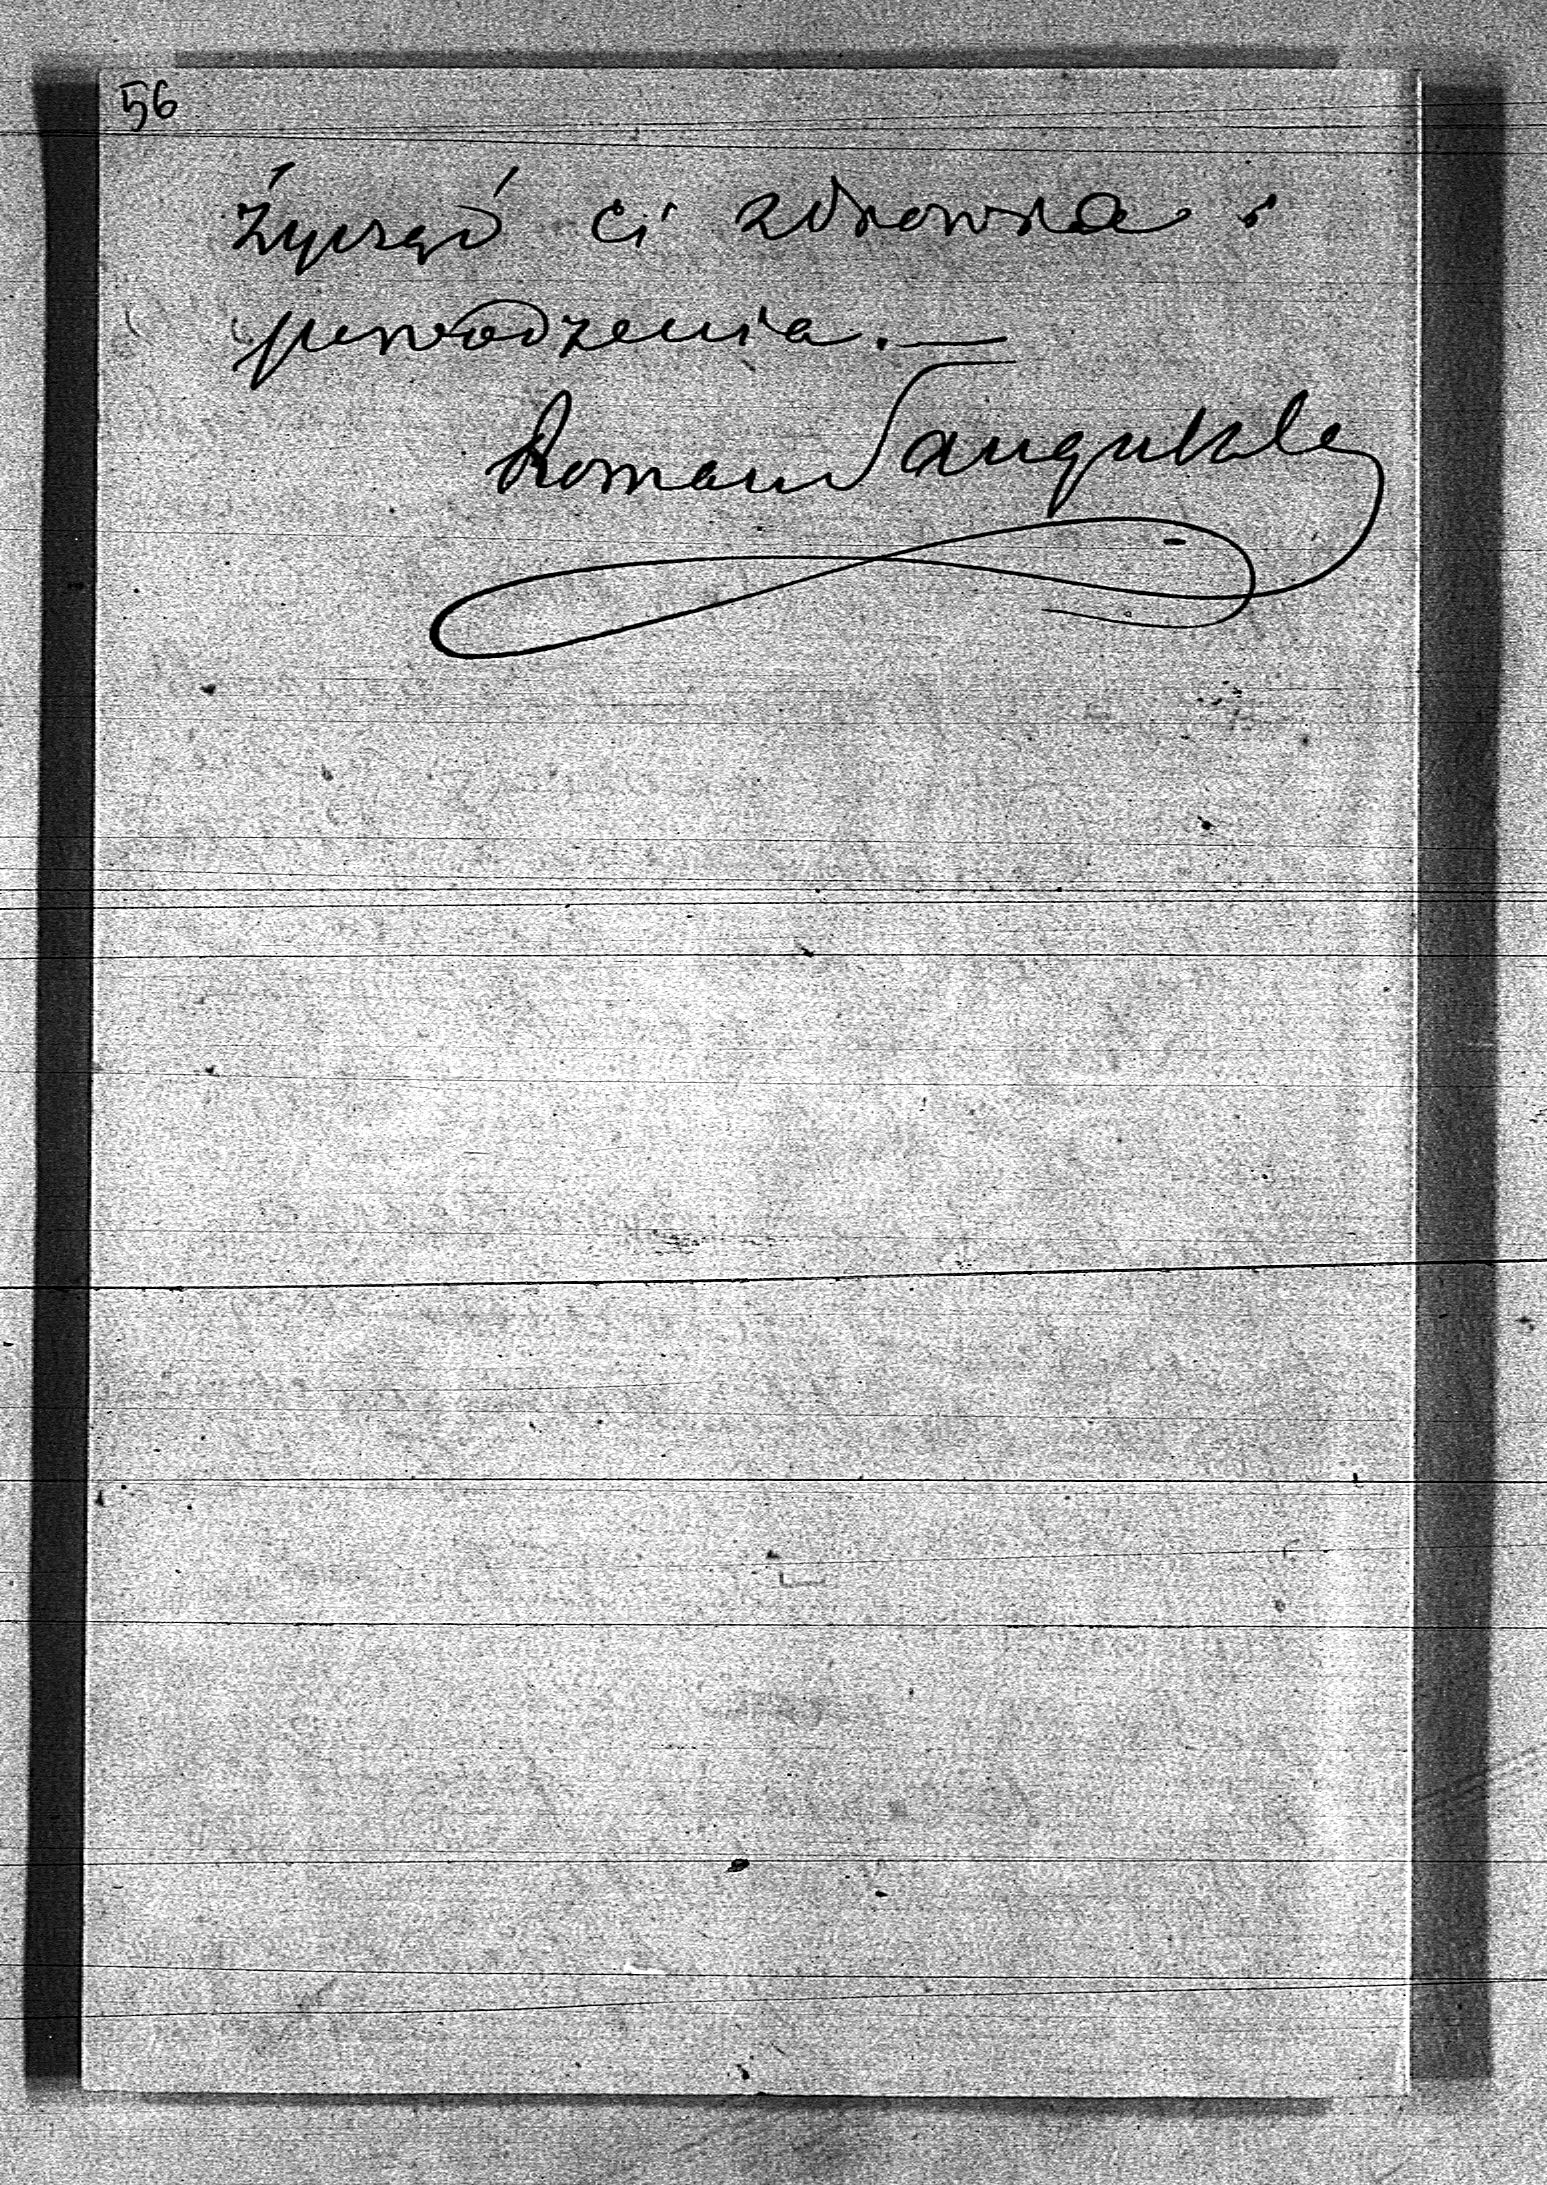 56
Życząć ci zdrowia i
powodzenia. —
Roman Sanguszko